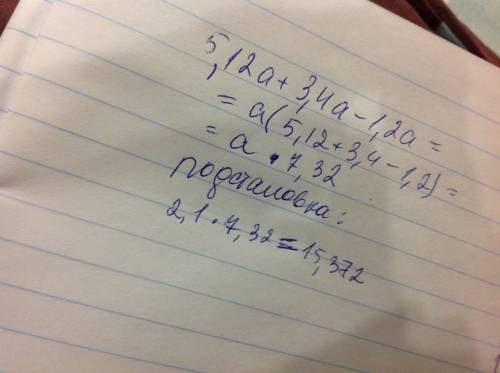 5,12a + 3,4a - 1,2a =
= a(5,12 + 3,4 - 1,2) =
= a · 7,32
подстановка:
2,1 · 7,32 = 15,372